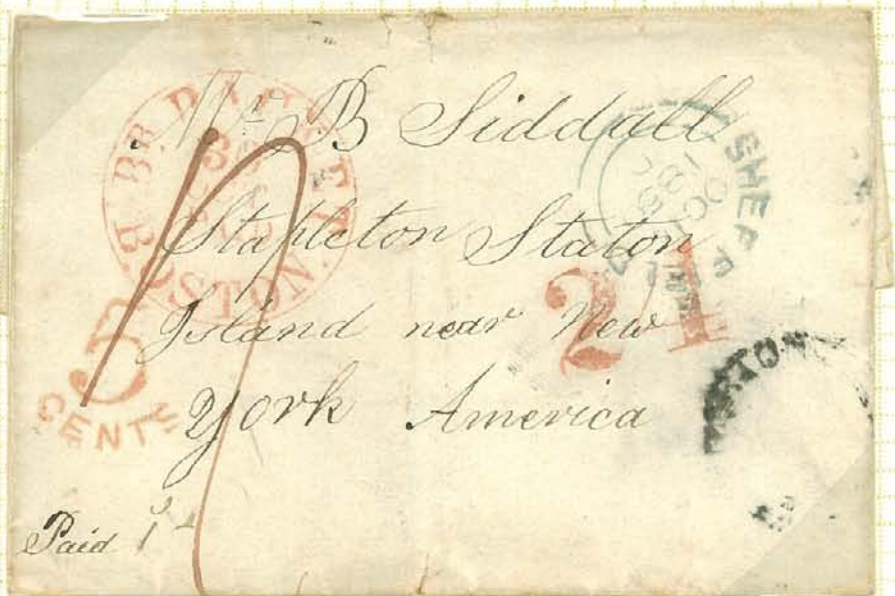 Mr B Siddall
Stapleton Staton
Island near New
York America
Paid 1
BR. PACKET
BOSTON
5
CENTS
24
SHEFFI
OC